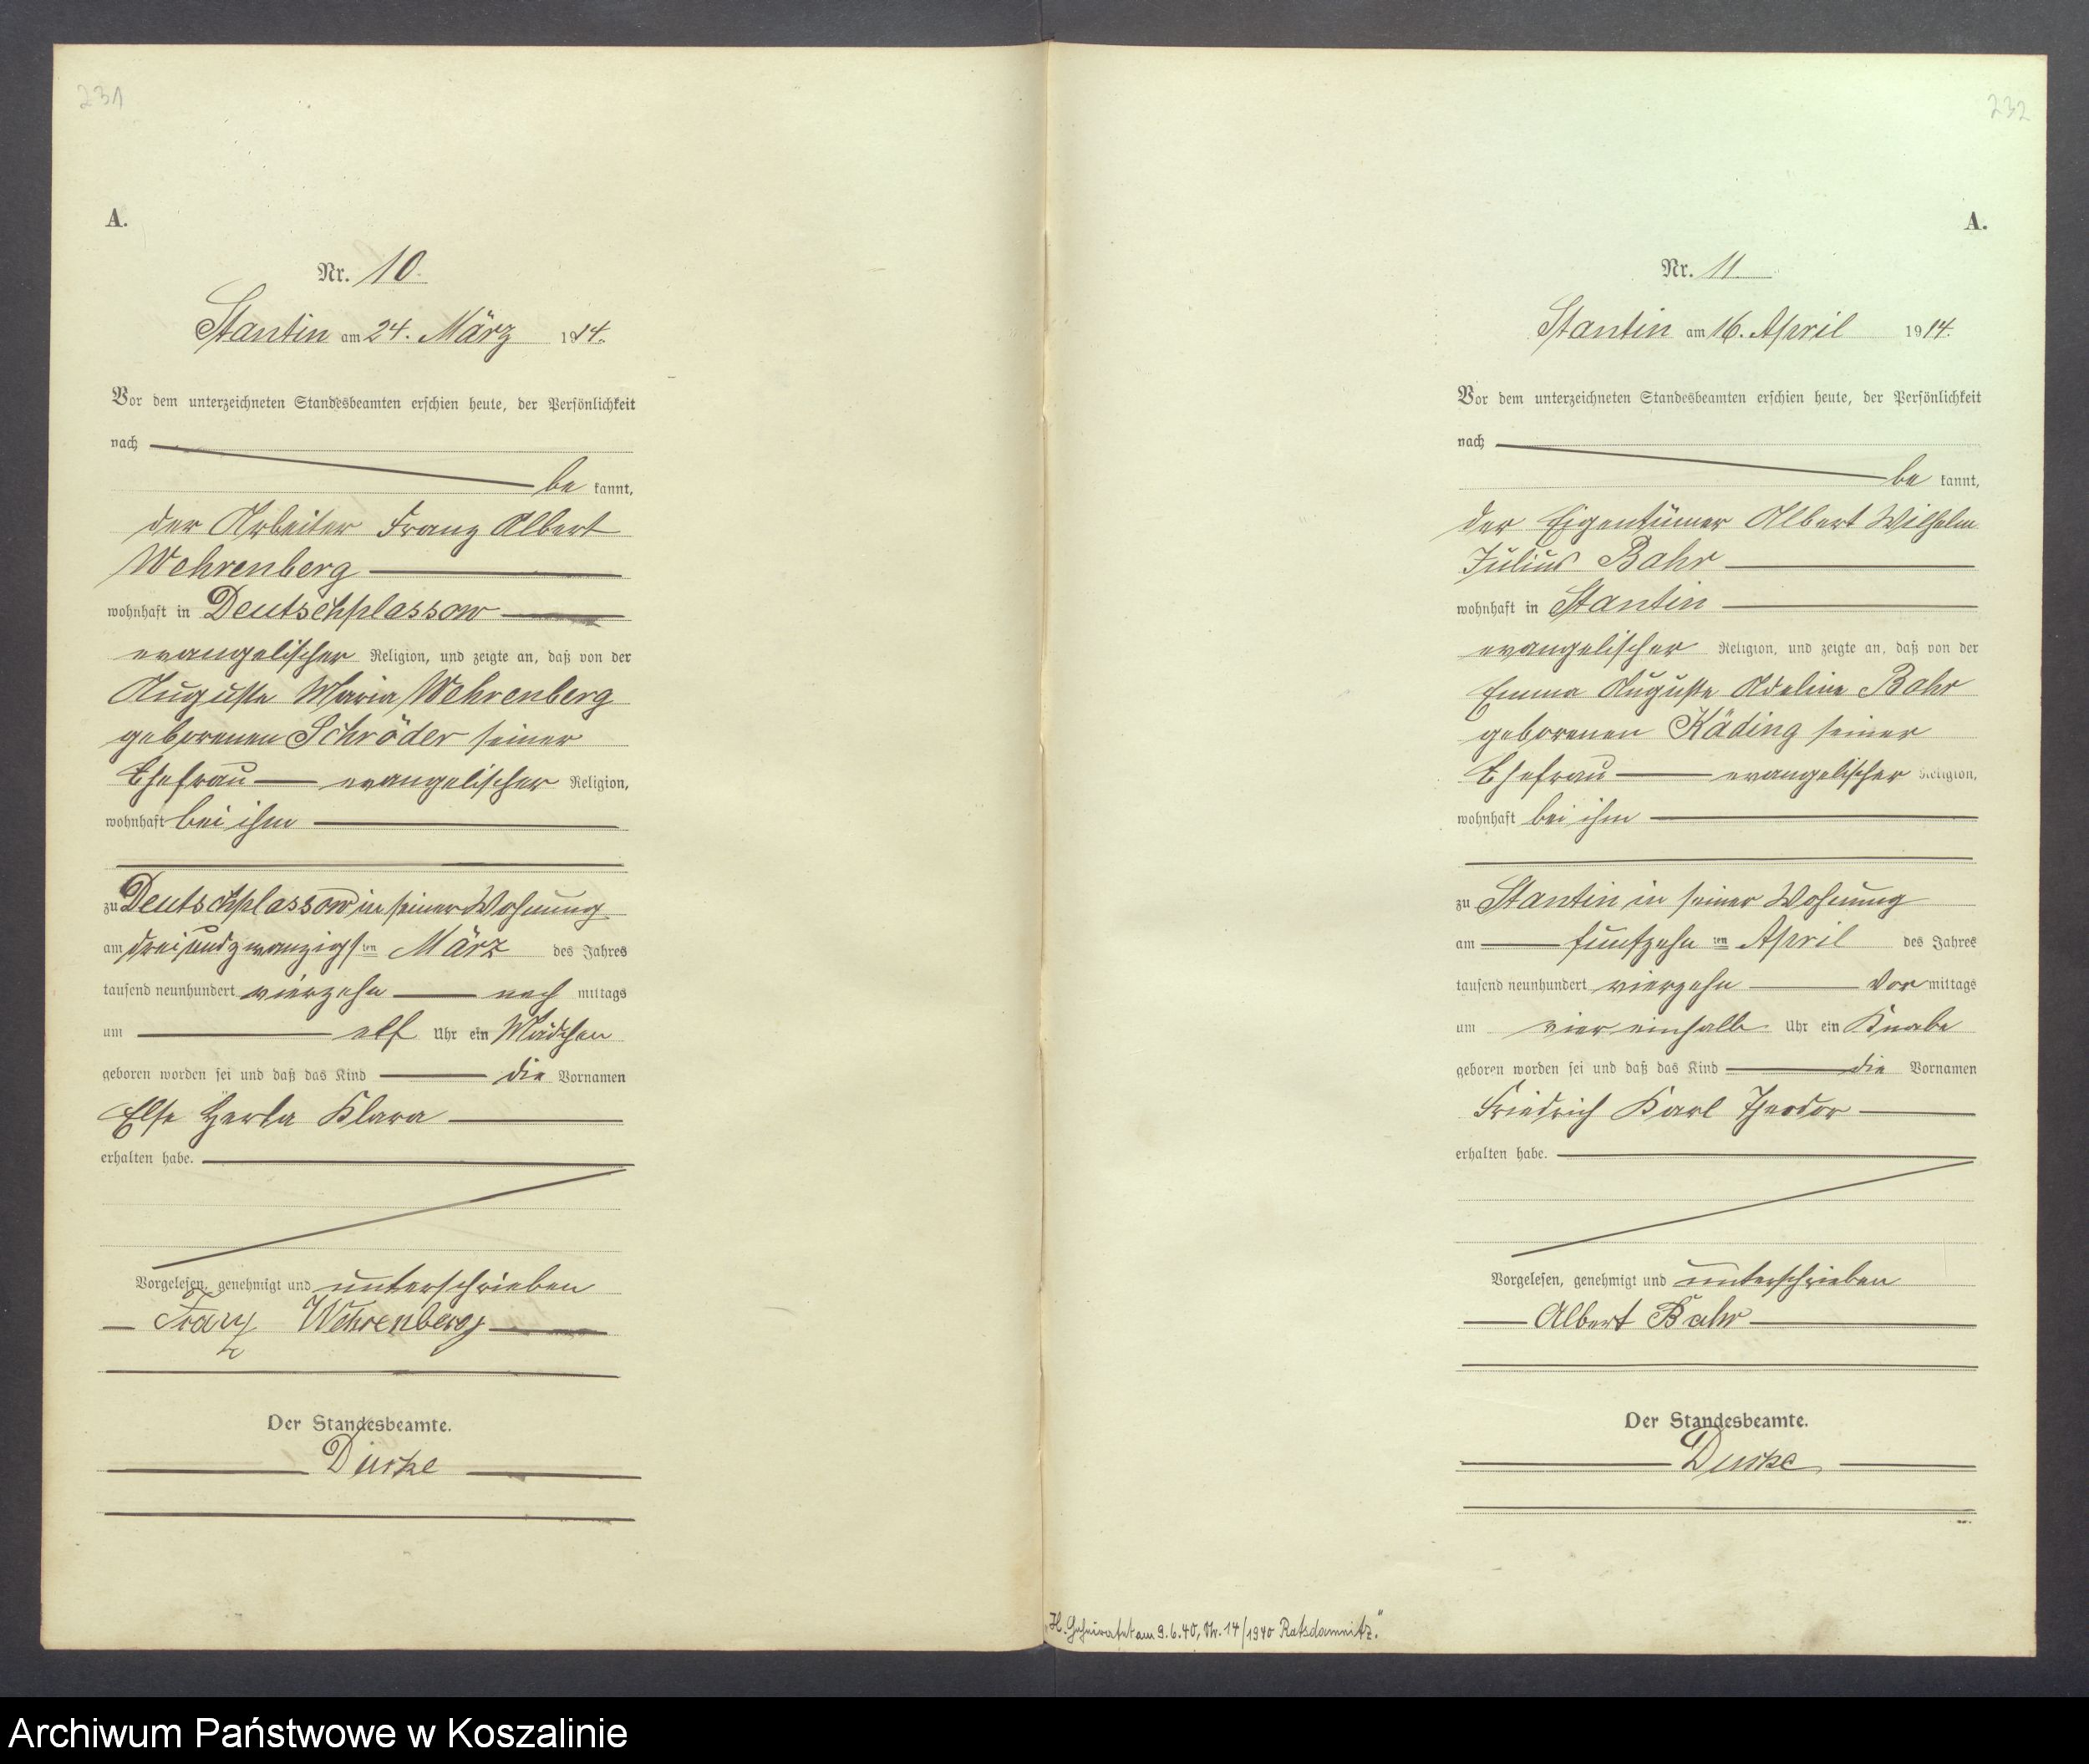 231
A.
Nr. 10.
Stantin am 24. März 1914.
Vor dem unterzeichneten Standesbeamten erschien heute, der Persönlichkeit
nach
be kannt,
der Arbeiter Franz Albert
Wehrenberg
wohnhaft in Deutschplassow
evangelischer Religion, und zeigte an, daß von der
Auguste Maria Wehrenberg
geborenen Schröder seiner
Ehefrau evangelischer Religion,
wohnhaft bei ihm
zu Deutschplassow in seiner Wohnung
am dreiundzwanzigsten März des Jahres
tausend neunhundert vierzehn nach mittags
um elf Uhr ein Mädchen
geboren worden sei und daß das Kind die Vornamen
Else Herta Klara
erhalten habe.
Vorgelesen, genehmigt und unterschrieben
Franz Wehrenberg
Der Standesbeamte.
232
A.
Nr. 11.
Stantin am 16. April 1914.
Vor dem unterzeichneten Standesbeamten erschien heute, der Persönlichkeit
nach
be kannt,
der Eigentümer Albert Wilhelm
Julius Bahr
wohnhaft in Stantin
evangelischer Religion, und zeigte an, daß von der
Emma Auguste Adeline Bahr
geborenen Käding seiner
Ehefrau evangelischer Religion,
wohnhaft bei ihm
zu Stantin in seiner Wohnung
am fünfzehn ten April des Jahres
tausend neunhundert vierzehn vor mittags
um vier einhalb Uhr ein Knabe
geboren worden sei und daß das Kind die Vornamen
Friedrich Karl Theodor
erhalten habe.
Vorgelesen, genehmigt und unterschrieben
Albert Bahr
Der Standesbeamte.
"H. Geheiratet am 9.6.40, Nr. 14/1940 Ratsdamnitz."
Archiwum Państwowe w Koszalinie